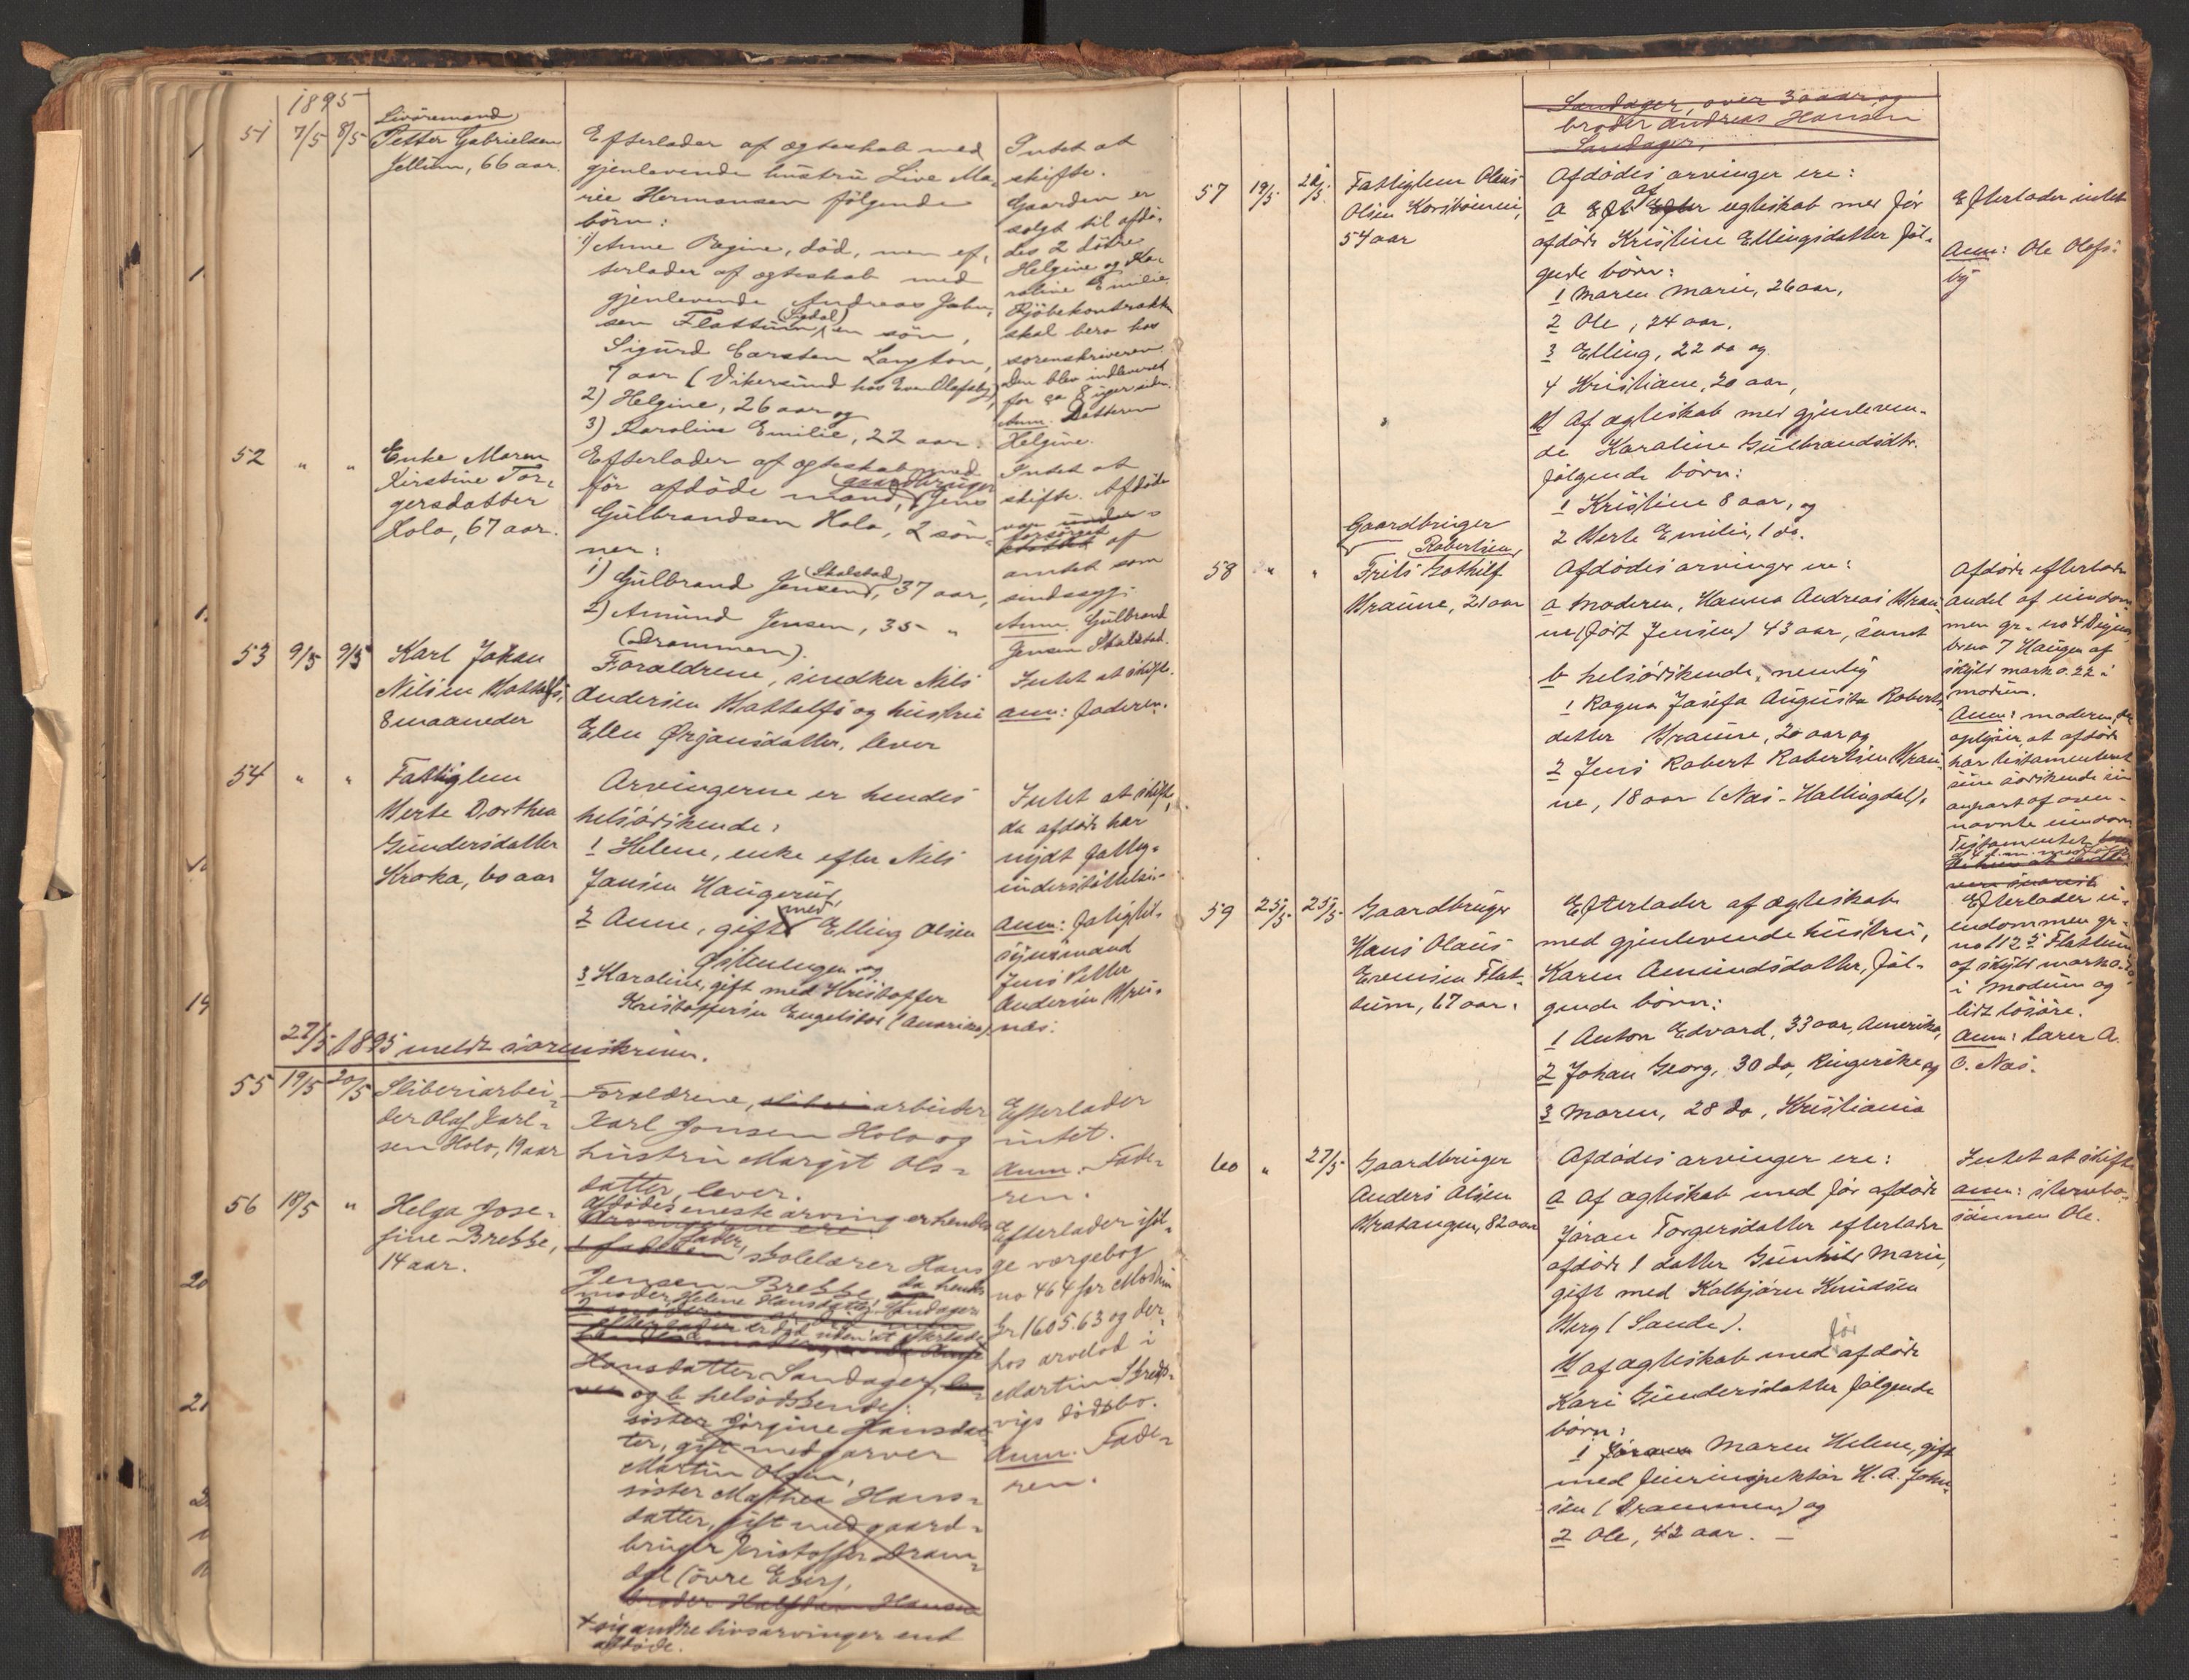 1895
51 7/5 8/5
Livöremand
Petter Gabrielsen
Jellum, 66 aar.
Efterlader af ægteskab med
gjenlevende hustru Live Ma-
rie Hermansen fölgende
börn:
1) Anne Regine, död, men ef-
terlader af ægteskab med
gjenlevende Andreas Jahn-
sen Flattum (Sigdal) en sön,
Sigurd Carsten Langton,
7 aar (Vikersund hos Even Olafsby),
2) Helgine, 26 aar og
3) Karoline Emilie, 22 aar
Intet at
skifte.
Gaarden er
solgt til afdö-
des 2 dötre
Helgine og Ka-
roline Emilie.
Kjöbekontrakten
skal bero hos
sorenskriveren.
Den blev indleveret
for ca 8 uger siden.
Anm. Datteren
Helgine.
52 " "
Enke Maren
Kirstine Tor-
gersdatter
Hola, 67 aar.
Efterlader af ægteskab med
för afdöde mand, gaardbruger Jens
Gulbrandsen Hola, 2 sön-
ner:
1) Gulbrand Jensen (Skalstad), 37 aar,
2) Amund Jensen, 35 "
(Drammen).
Intet at
skifte. Afdöde
var under-
forsörget af
amtet som
sindssyg.
Anm. Gulbrand
Jensen Skalstad.
53 9/5 9/5
Karl Johan
Nilsen
8 maaneder
Forældrene, snedker Nils
Andersen og hustru
Ellen Ørjansdatter, lever
Intet at skifte.
Anm: Faderen.
54 " "
Fattiglem
Berte Dorthea
Gundersdatter
Kroka, 60 aar
Arvingerne er hendes
helsödskende:
1 Helene, enke efter Nils
Jansen Haugerud,
2 Anne, gift med Elling Olsen
Østenengen og
3 Karoline, gift med Kristoffer
Kristoffersen Engelstad (Amerika)
Intet at skifte,
da afdöde har
nydt fattig-
understöttelse.
Anm: fatigtil-
synsmand
Jens Petter
Andersen
27/5 1895 meldt sorenskriver.
55 19/5 20/5
Sliberiarbei-
der Olaf Karl-
sen Holo, 19 aar
Forældrene, sliberiarbeider
Karl Jonsen Holo og
hustru Margit Ols-
datter, lever.
Efterlader
intet.
Anm. Fade-
ren.
56 18/5 "
Helga Jose-
fine Brekke,
14 aar.
Afdödes eneste arving er hendes
Arvingerne ere:
fader, skolelærer Hans
Jensen Brekke, da hendes
moder Helene Hansdatter Sandager
er död uden at efterlade
Hansdatter Sandager,
og b helsödskende:
söster Jörgine Hansdat-
ter, gift med garver
Martin Olsen,
söster Mathea Hans-
datter, gift med gaard-
bruger Kristoffer Dram-
dal (övre Eker),
broder Halfdan Hansen
+ sig andre livsarvinger end
afdöde.
Efterlader iföl-
ge værgebog
no 464 for Modum
Kr 1605.63 og der-
hos arvelod i
Martin
vigs dödsbo.
Anm. Fade-
ren.
Sandager, over 30 aar, og
broder Andreas Hansen
Sandager,
57 19/5 20/5
Fattiglem Olaus
Olsen Korsböeiei,
54 aar
Afdödes arvinger ere:
a af ægteskab med för
afdöde Kristine Ellingsdatter föl-
gende börn:
1 Maren Marie, 26 aar,
2 Ole, 24 aar,
3 Elling, 22 do og
4 Kristiane, 20 aar,
b Af ægteskab med gjenleven-
de Karoline Gulbrandsdtr.
fölgende börn:
1 Kristine 8 aar, og
2 Berte Emilie, 1 do.
Efterlader intet
Anm: Ole Olafs-
by
58 " "
Gaardbruger
Frits Gothilf Robertsen
Braune, 21 aar
Afdödes arvinger ere:
a Moderen, Hanna Andrea Brau-
ne (född Jensen) 43 aar, samt
b helsödskende, nemlig
1 Ragna Josefa Augusta Roberts-
datter Braune, 20 aar og
2 Jens Robert Robertsen Brau-
ne, 18 aar (Næs - Hallingdal).
Afdöde efterlader
andel af eiendom-
men gr. no 4
brno 7 Haugen af
skyld mark 0.22 i
Modum.
Anm: moderen, der
oplyser at afdöde
har testamenteret
sine södskende sin
anpart af oven-
nævnte eiendom.
Testamentet
59 25/5 25/5
Gaardbruger
Hans Olaus
Evensen Flat-
tum, 67 aar.
Efterlader af ægteskab
med gjenlevende hustru,
Karen Amundsdatter, föl-
gende börn:
1 Anton Edvard, 33 aar, Amerika,
2 Johan Georg, 30 do, Ringerike og
3 Maren, 28 do, Kristiania
Efterlader ei-
endommen gr-
Flattum
af skyld mark
i Modum og
lidt lösöre.
Anm: lærer A.
O. Næs.
60 " 27/5
Gaardbruger
Anders Olsen
Bratangen, 82 aar
Afdödes arvinger ere:
a Af ægteskab med för afdöde
Jöran Torgersdatter efterlader
afdöde 1 datter Gunhild Marie,
gift med Kolbjörn Knudsen
Berg (Sande).
b af ægteskab med för afdöde
Kari Gundersdatter fölgende
börn:
1 Maren Helene, gift
med feierinspektör H. A. John-
sen (Drammen) og
2 Ole, 42 aar. —
Intet at skifte
Anm: stervbo-
sönnen Ole.